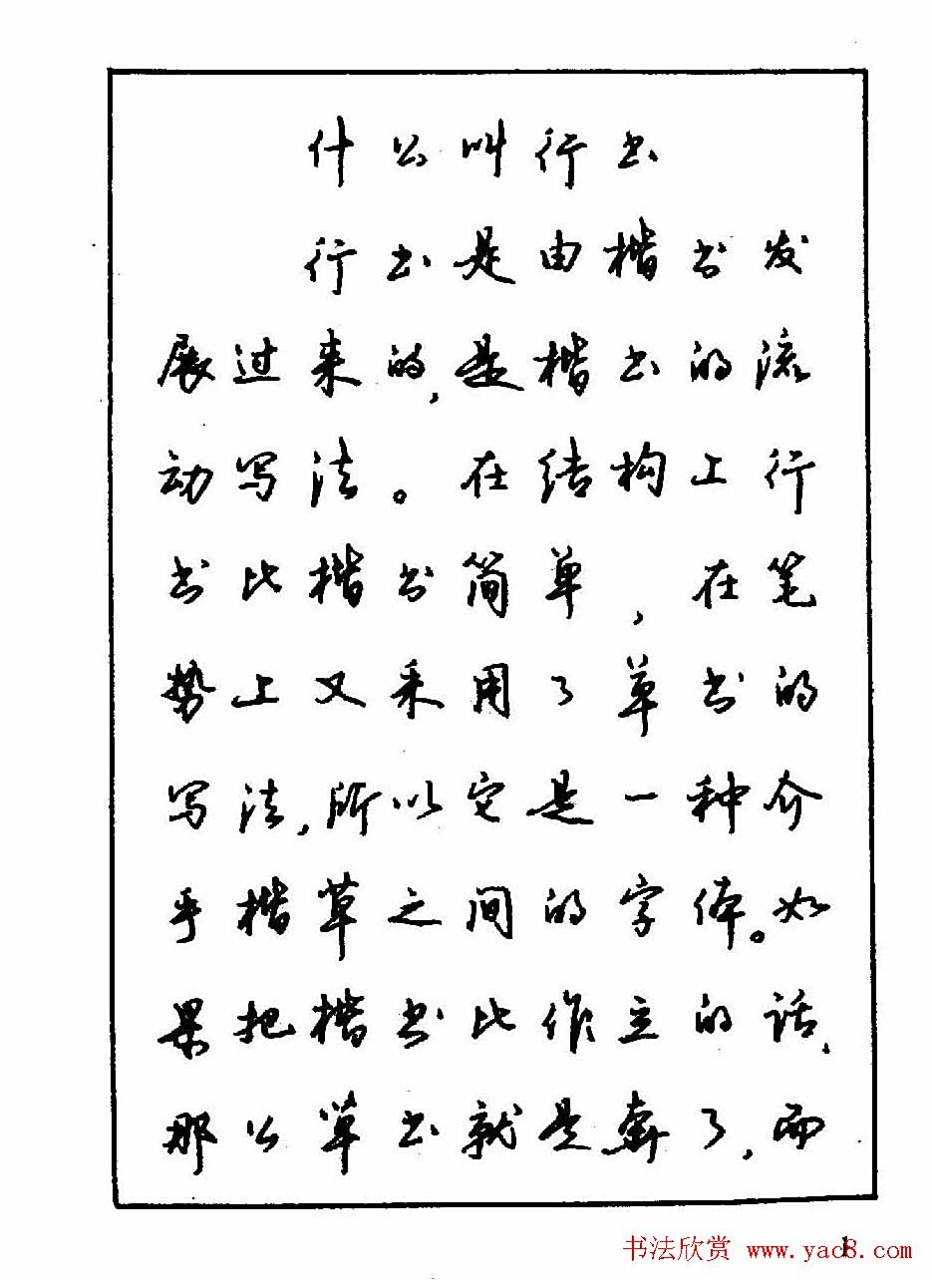 什么叫行书
行书是由楷书发
展过来的,是楷书的流
动写法。在结构上行
书比楷书简单,在笔
势上又采用了草书的
写法,所以它是一种介
乎楷草之间的字体。如
果把楷书比作立的话,
那么草书就是奔了,而
1
书法欣赏 www.yac8.com